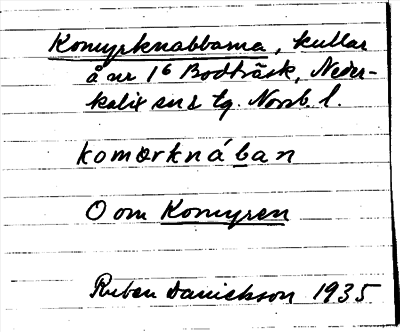 Komyrknabbarna, kullar
å nr 1⁶ Bodträsk, Neder-
kalix sn & tg. Norrb. l.
komørknában
O om Komyren
Ruben Danielsson 1935